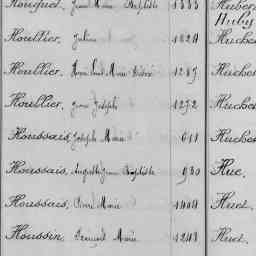 Houguet, Jean Marie Baptiste 1333 Huber
Huby
Houllier, Julien 1824 Huche
Houllier, Marie 1287 Huche
Houllier, Jean Joseph 1272 Huche
Houssais, Joseph Marie 611 Huche
Houssais, Auguste Jean Baptiste 930 Hue,
Houssais, Pierre Marie 1404 Huet,
Houssin, François Marie 1243 Huet,